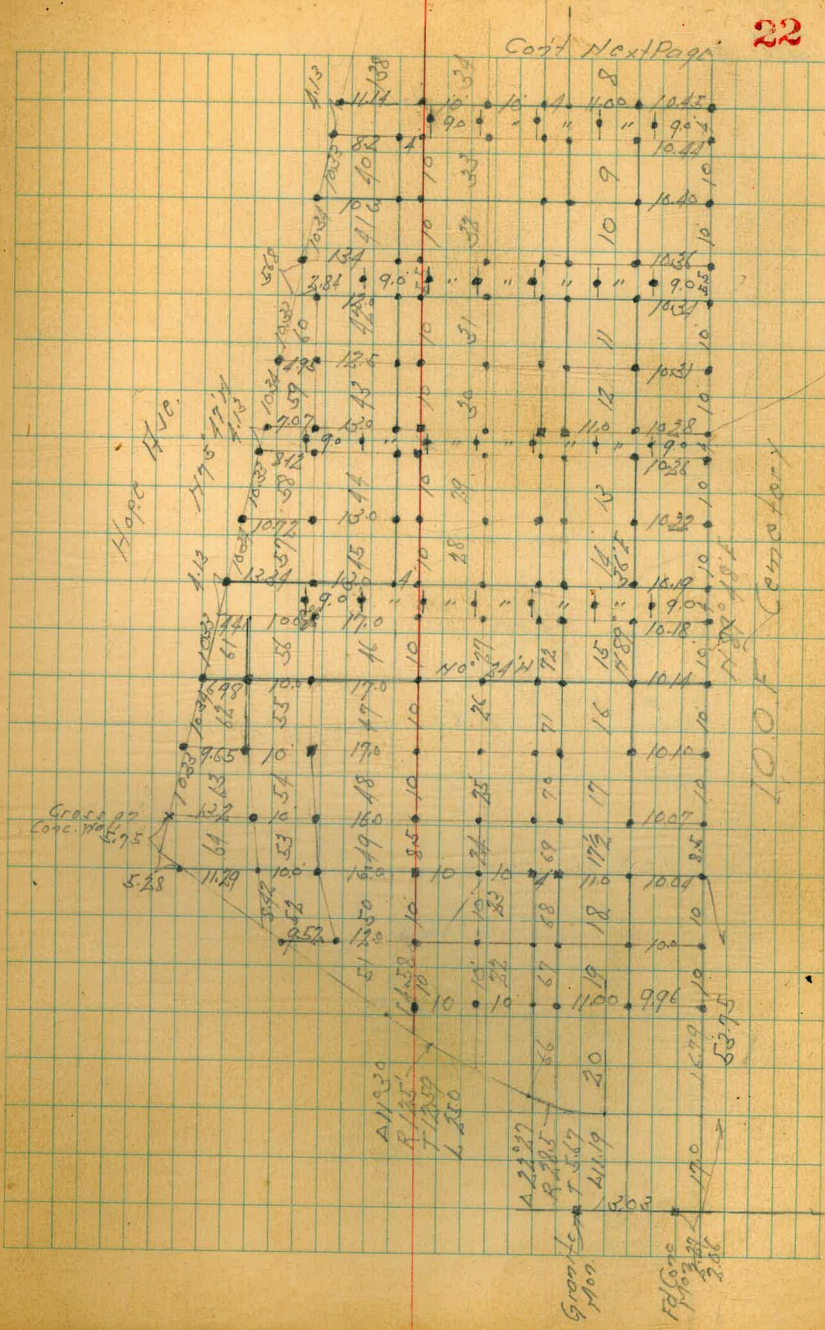 22
Cont Next Page
4.13 11.14 138 10 34 10 4 11.00 8 10.45
9.0 " " " " 9.0 4
8.2 4 10.44
10.33 40 10 33 9 10
10 10.40
10.34 41 10 32 10 10
13.4 10.36
2.84 9.0 5.5 " " " " " 9.0 5.5
10.34
10.33 60 42 10 31 11 10
4.95 12.5 10.31
10.34 59 43 10 30 12 10
4.13 7.07 13.0 11.0 10.28
9.0 " " " " " " 9.0 4
8.42 10.26
10.33 58 44 10 29 13 10
10.72 13.0 10.22
10.34 57 45 10 28 14 10
4.13 13.34 13.0 4 10.19
9.0 " " " " " " 9.0 4
4.41 10.0 17.0 10.18
10.33 61 56 46 10 27 72 15 10
N 0° 24' W
6.98 10.0 17.0 10.14
10.34 62 55 47 10 26 71 16 10
9.65 10 17.0 10.10
10.33 63 54 48 10 25 70 17 10
13.2 10 16.0 10.07
Cross on
Conc. Wall
5.75
64 53 49 8.5 24 69 17½ 8.5
5.28 11.29 10.0 16.0 10 10 4 11.0 10.04
52 50 10 10 23 68 18 10
9.52 12.0 10.0
51 12.58 10 10 22 67 19 10
10 10 11.00 9.96
66 20 16.79
53.75
Hope Ave.
I.O.O.F. Cemetery
Δ 11°30
R 125'
T 12.59
L 25.0
Δ 22°27
R 28.5
T 5.67
L 11.19
3.03
17.0
Granite
Mon.
Fd Conc
Mon
2.27
2.06